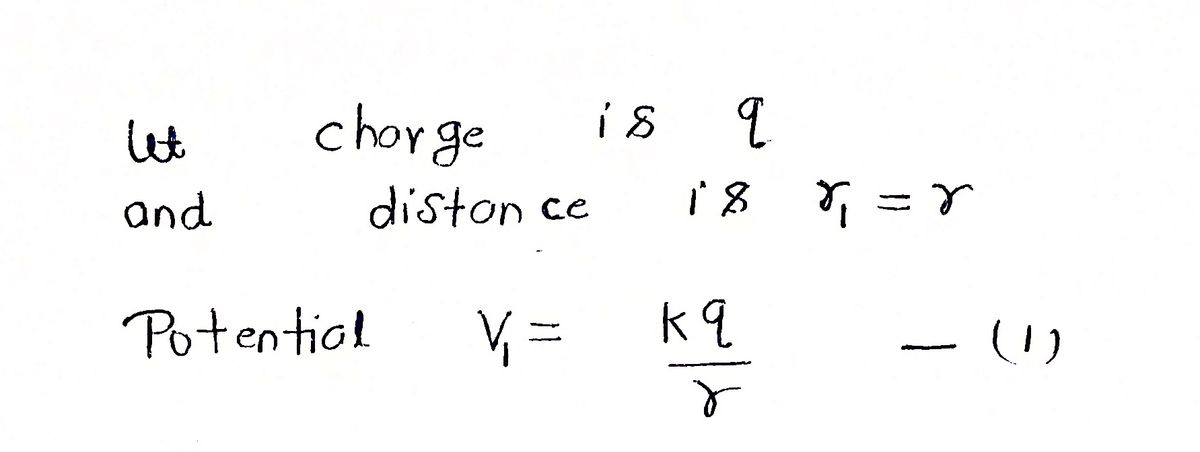 let charge is q
and distance is r₁ = r
Potential V₁ = kq/r — (1)